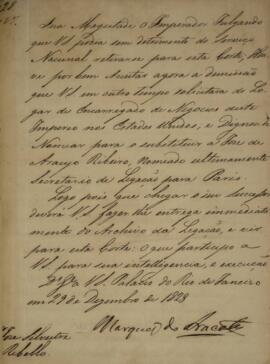 Sua Magestade o Imperador Julgando
que VS. possa sem detrimento do Serviço
Nacional retirar-se para esta Corte, Hou-
ve por bem Aceitar agora a demissão
que VS em outro tempo solicitara do Lo-
gar de Encarregado de Negocios deste
Imperio nos Estados Unidos, e Dignou-se
Nomear para o substituir a José de
Araujo Ribeiro, nomeado ultimamente
Secretario de Legação para Paris.
Logo pois que chegar o seu successor
deverá VS. fazer-lhe entrega immediata-
mente do Archivo da Legação, e vir
para esta Corte: o que participo a
VS. para sua intelligencia, e execução
Ds. Ge. a VS. Palacio do Rio de Janeiro
em 29 de Dezembro de 1828
Marquez de Aracaty
Jose Silvestre
Rebello.